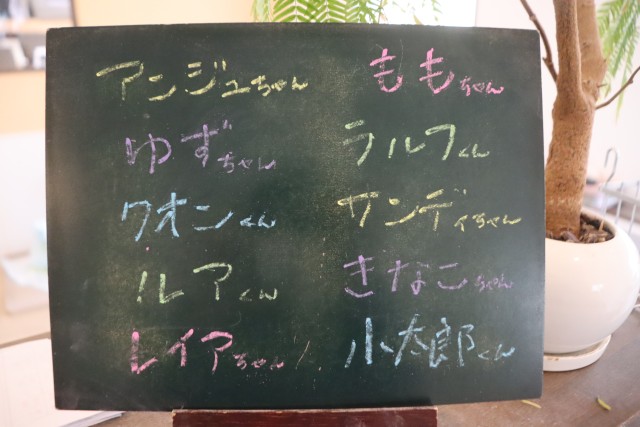 アンジュちゃん
ももちゃん
ゆずちゃん
ラルフくん
クオンくん
サンディちゃん
ルアくん
きなこちゃん
レイアちゃん
小太郎くん